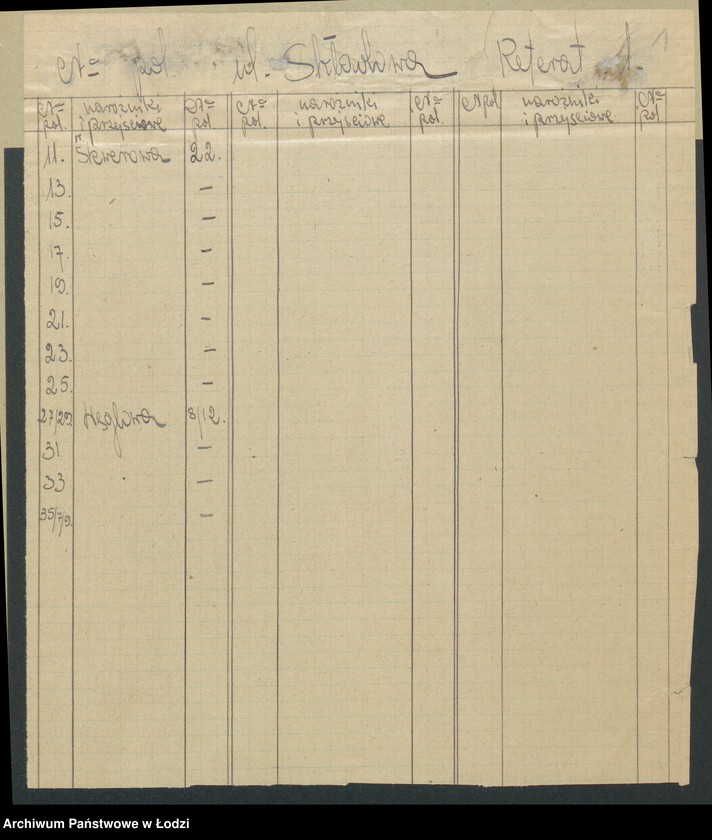 № pol. ul. Składowa Referat 1. 1
№ pol. narożniki i przejściowe № pol. № pol. narożniki i przejściowe № pol. № pol narożniki i przyściowe № pol.
11. Skwerowa 22.
13. —
15. —
17. —
19. —
21. —
23. —
25. —
27/29 Węglowa 8/12.
31 —
33 —
35/7/9. —
Archiwum Państwowe w Łodzi